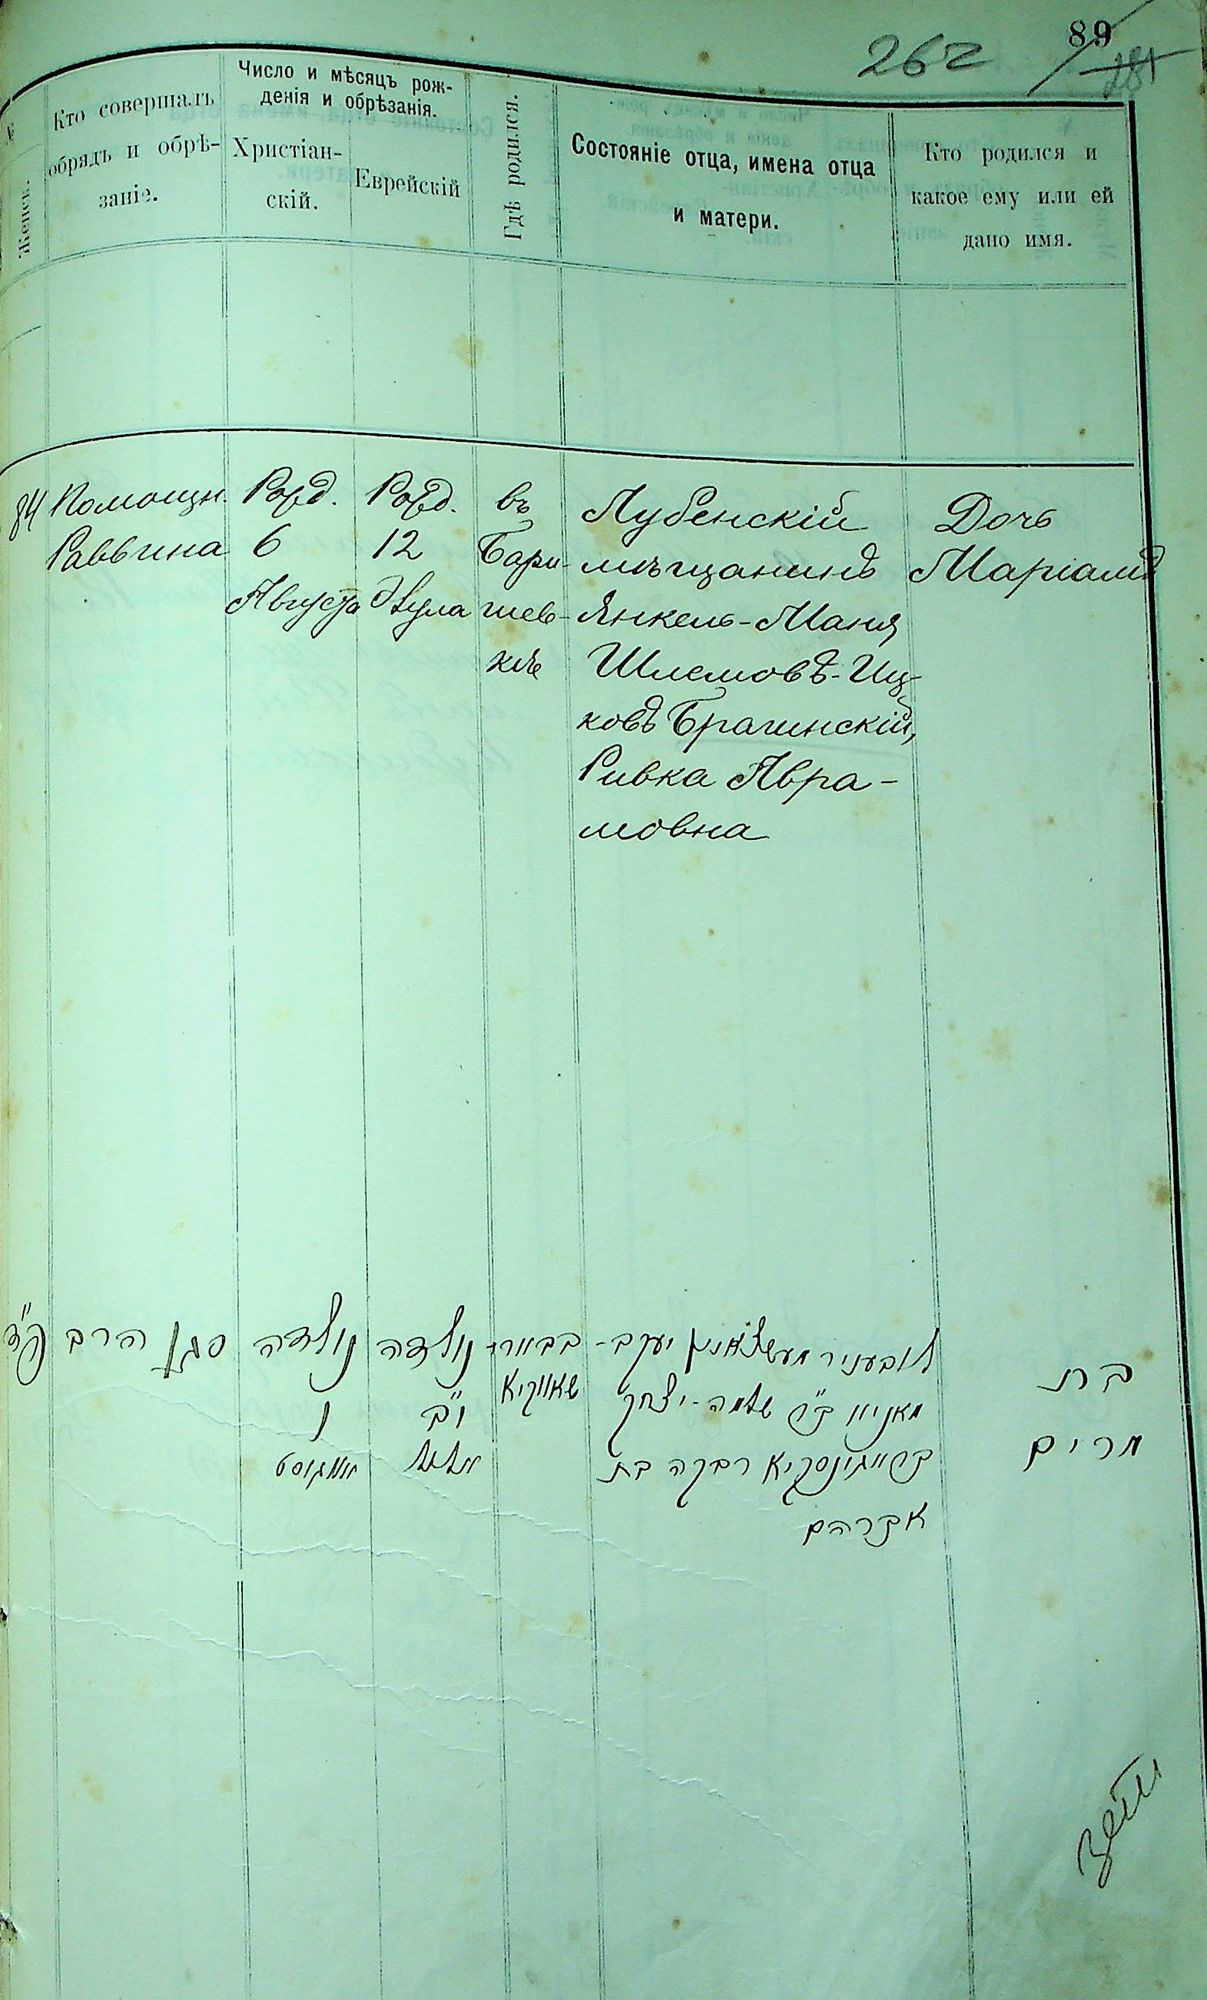 89
262
281
№
Женск.
Кто совершалъ
обрядъ и обрѣ-
заніе.
Число и мѣсяцъ рож-
денія и обрѣзанія.
Христіан-
скій.
Еврейскій
Гдѣ родился.
Состояніе отца, имена отца
и матери.
Кто родился и
какое ему или ей
дано имя.
84
Помощн.
Раввина
Рожд.
6
Августа
Рожд.
12
Аула
въ
Бари-
шев-
кѣ
Лубенскій
мѣщанинъ
Янкель-Маня
Шлемовъ-Иц-
ковъ Брагинскій,
Ривка Авра-
мовна
Дочь
Маріамъ
פ״ד
סגן הרב
נולדה
ו
אווגוסט
נולדה
י״ב
בבארי
שאווקיא
לובעניר יעקב-
מאניא ב״ר שלמה-יצחק
רבקה בת
אברהם
בת
מרים